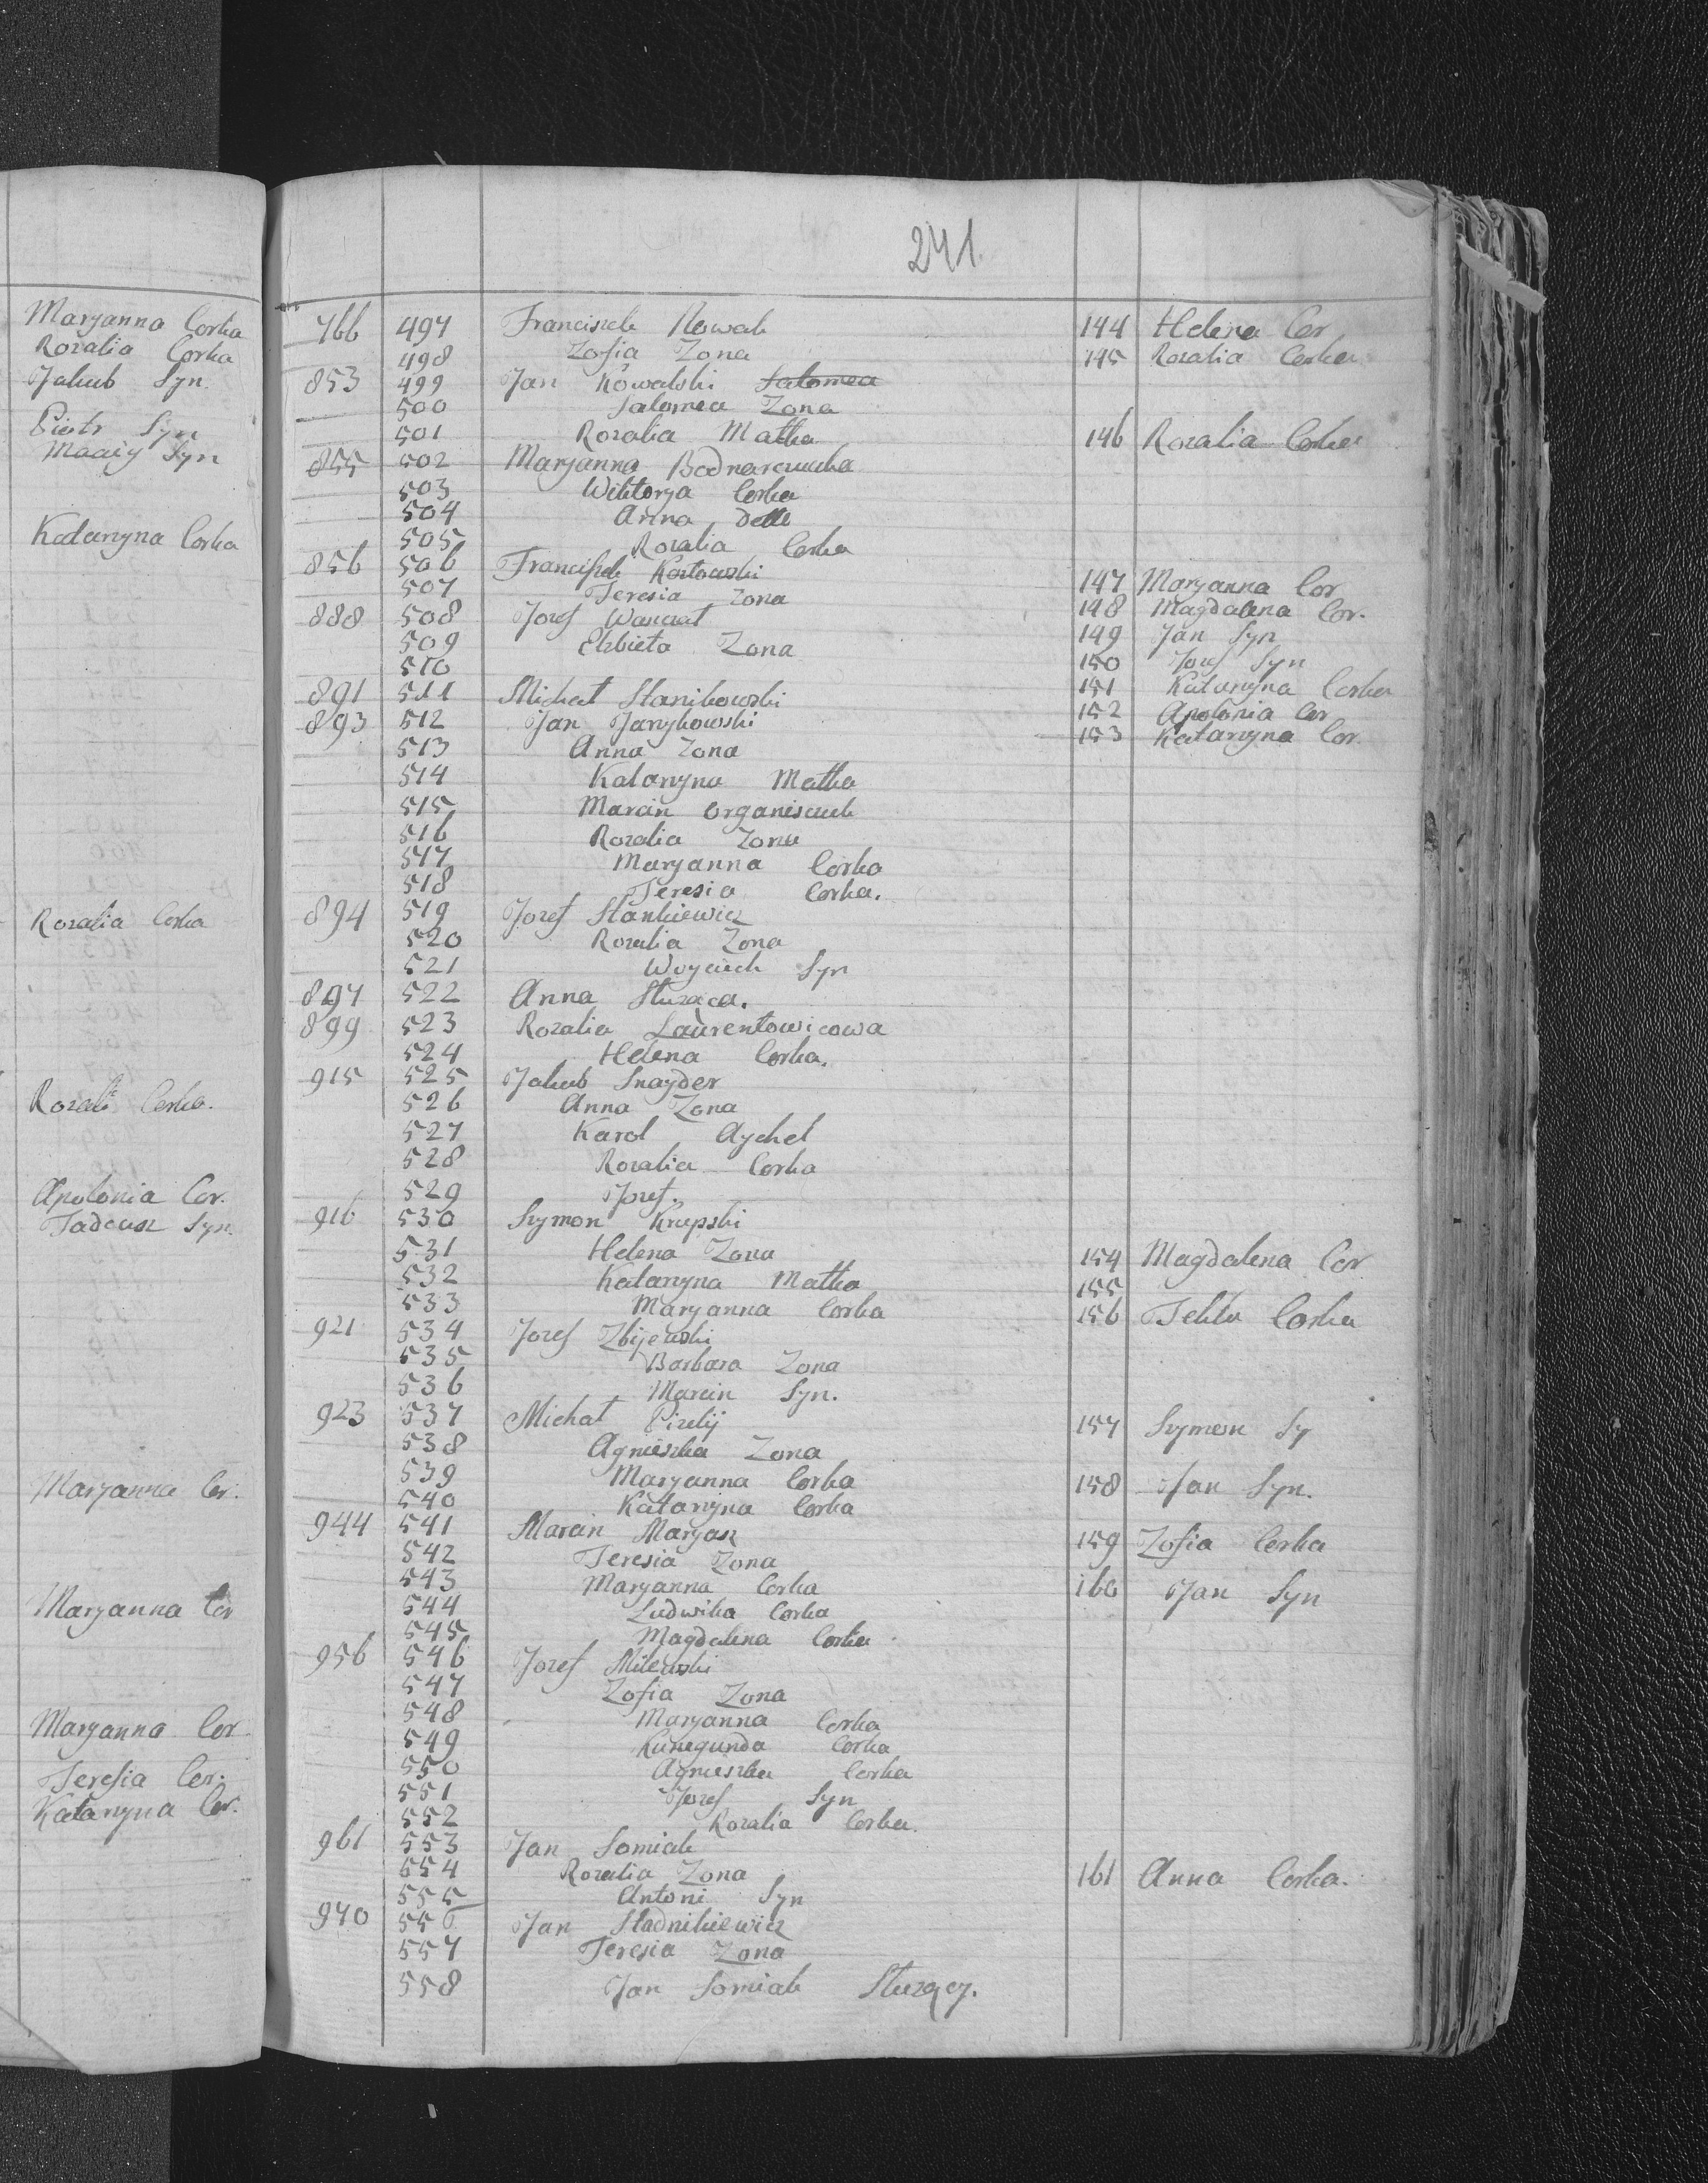 Maryanna Corka
Rozalia Corka
Jakub Syn.
Piotr Syn
Maciy Syn
Katarzyna Corka
Rozalia Corka
Rozali Corka.
Apolonia Cor.
Tadeusz Syn.
Maryanna Cor.
Maryanna Cor
Maryanna Cor
Teresia Cor.
Katarzyna Cor.
241.
766 497 Franciszek Nowak 144 Helena Cor
498 Zofia Zona 145 Rozalia Corka
853 499 Jan Kowalski Salomea
500 Salomea Zona
501 Rozalia Matka 146 Rozalia Corka
855 502 Maryanna Bednarczucka
503 Wiktorya Corka
504 Anna
505 Rozalia Corka
856 506 Franciszek Kozłowski
507 Teresia Zona 147 Maryanna Cor
888 508 Jozef Wancrat 148 Magdalena Cor.
509 Elzbieta Zona 149 Jan Syn
510 150 Jozef Syn
891 511 Michał Stanikowski 151 Katarzyna Corka
893 512 Jan Janykowski 152 Apolonia Cor
513 Anna Zona 153 Katarzyna Cor.
514 Katarzyna Matka
515 Marcin Organisciuk
516 Rozalia Zona
517 Maryanna Corka
518 Teresia Corka.
894 519 Jozef Stankiewicz
520 Rozalia Zona
521 Woyciech Syn
897 522 Anna Sluzaca.
899 523 Rozalia Laurentowicowa
524 Helena Corka.
915 525 Jakub Snayder
526 Anna Zona
527 Karol Aychel
528 Rozalia Corka
529 Jozef.
916 530 Szymon Krupski
531 Helena Zona 154 Magdalena Cor
532 Katarzyna Matka 155
533 Maryanna Corka 156 Tekla Corka
921 534 Jozef Zbijewski
535 Barbara Zona
536 Marcin Syn.
923 537 Michał Pizelij 157 Szymon Sy
538 Agnieszka Zona
539 Maryanna Corka 158 Jan Syn.
540 Katarzyna Corka
944 541 Marcin Maryasz 159 Zofia Corka
542 Teresia Zona
543 Maryanna Corka 160 Jan Syn
544 Ludwika Corka
545 Magdalena Corka
956 546 Jozef Milewski
547 Zofia Zona
548 Maryanna Corka
549 Kunegunda Corka
550 Agnieszka Corka
551 Jozef Syn
552 Rozalia Corka.
961 553 Jan Somiak
554 Rozalia Zona 161 Anna Corka.
555 Antoni Syn
970 556 Jan Stadnikiewicz
557 Teresia Zona
558 Jan Somiak Sluzący.